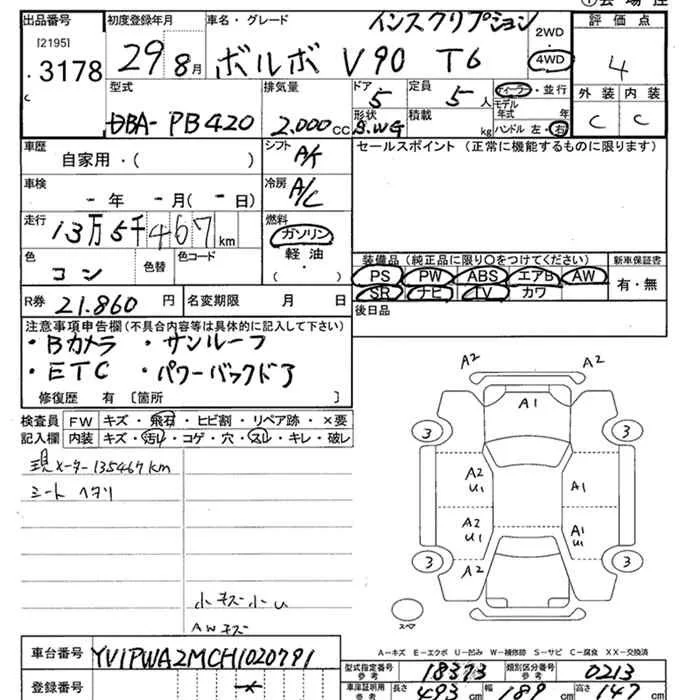 出品番号
[2195]
3178
c
初度登録年月
29 8月
車名・グレード
インスクリプション
ボルボ V90 T6
2WD
4WD
評価点
4
外装 内装
C C
型式
DBA- PB420
排気量
2.000cc
ドア
5
定員
5人
形状
S.WG
積載
kg
ディーラー・並行
モデル年式 年
ハンドル 左・右
車歴
自家用・( )
シフト
A/T
セールスポイント (正常に機能するものに限ります)
車検
- 年 - 月(- 日)
冷房
A/C
走行
13万5千467km
燃料
ガソリン
軽油
( )
色
コン
色替
色コード
装備品(純正品に限り〇をつけてください)
PS PW ABS エアB AW
SR ナビ TV カワ
新車保証書
有・無
R券 21.860 円
名変期限 月 日
後日品
注意事項申告欄(不具合内容等は具体的に記入して下さい)
・Bカメラ ・サンルーフ
・ETC ・パワーバックドア
修復歴 有 [箇所 ]
検査員記入欄
FW キズ・飛石・ヒビ割・リペア跡・×要
内装 キズ・汚レ・コゲ・穴・スレ・キレ・破レ
現メーター135467km
シートヘタリ
小キズ小U
AWキズ
A2 A2
A1
3 3
A2 U1 A1
A2 U1 A1 U1
3 A2 3
スペア
A-キズ E-エクボ U-凹み W-補修跡 S-サビ C-腐食 XX-交換済
車台番号 YV1PWA2MCH1020791
登録番号
型式指定番号参考 18373 類別区分番号参考 0213
車庫証明用参考 長さ 493cm 幅 189cm 高さ 147cm